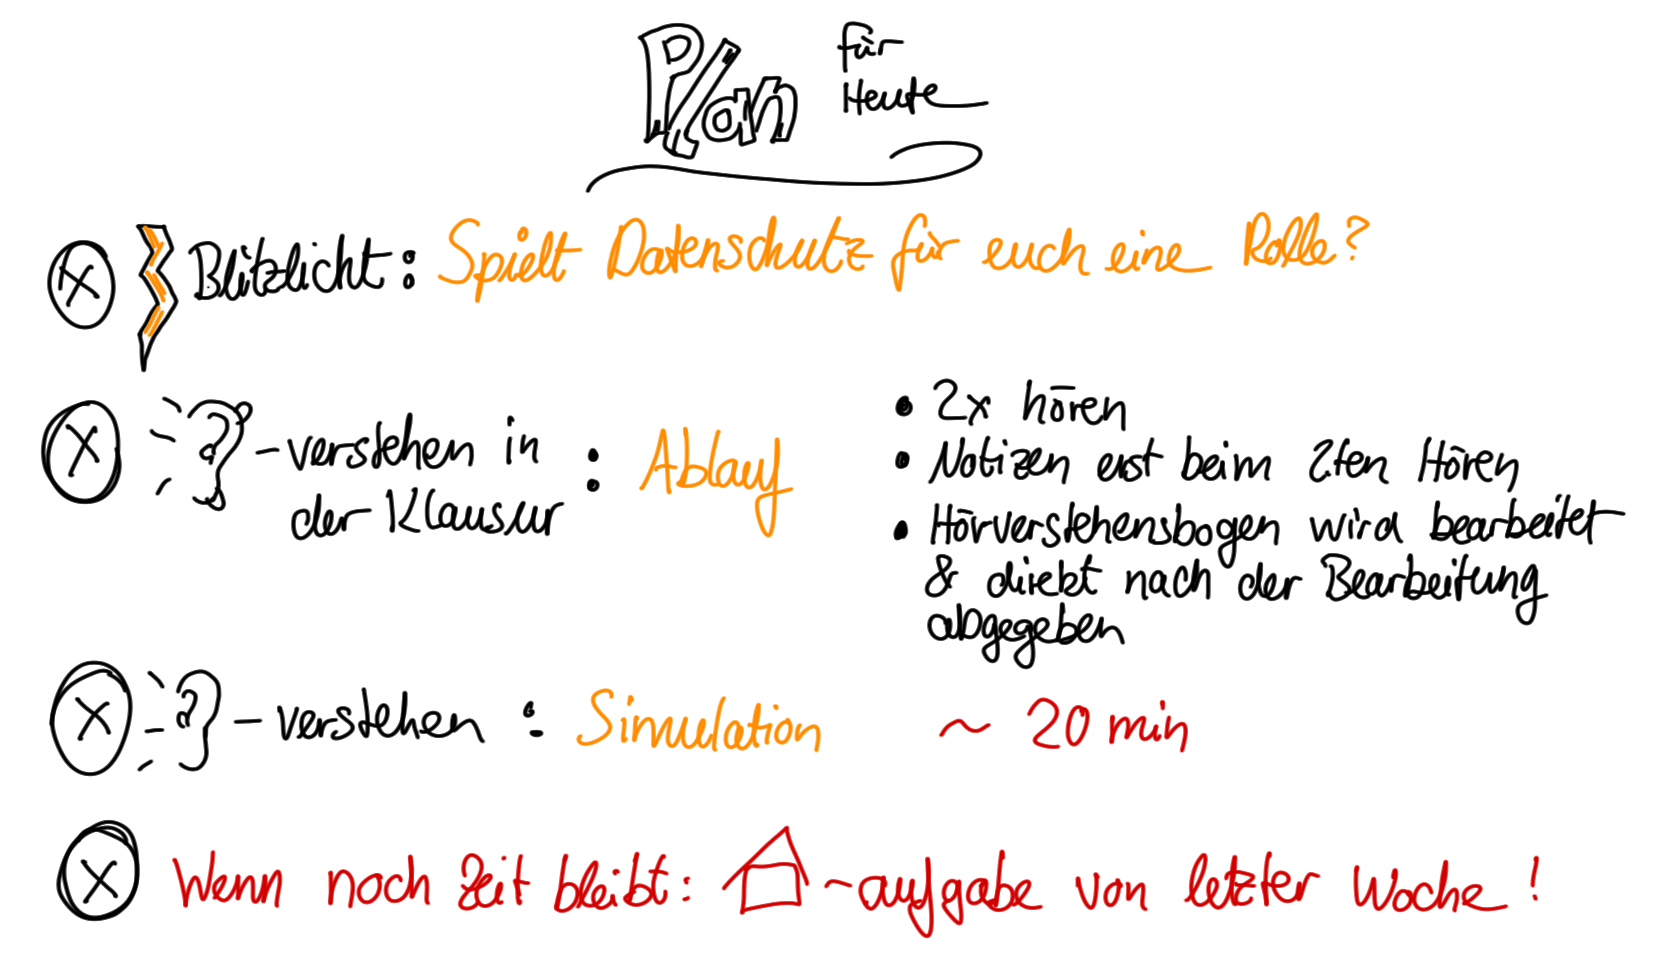 Plan für Heute
Blitzlicht: Spielt Datenschutz für euch eine Rolle?
-verstehen in der Klausur : Ablauf
• 2x hören
• Notizen erst beim 2ten Hören
• Hörverstehensbogen wird bearbeitet
& direkt nach der Bearbeitung
abgegeben
-verstehen : Simulation ~ 20 min
Wenn noch Zeit bleibt: -aufgabe von letzter Woche!